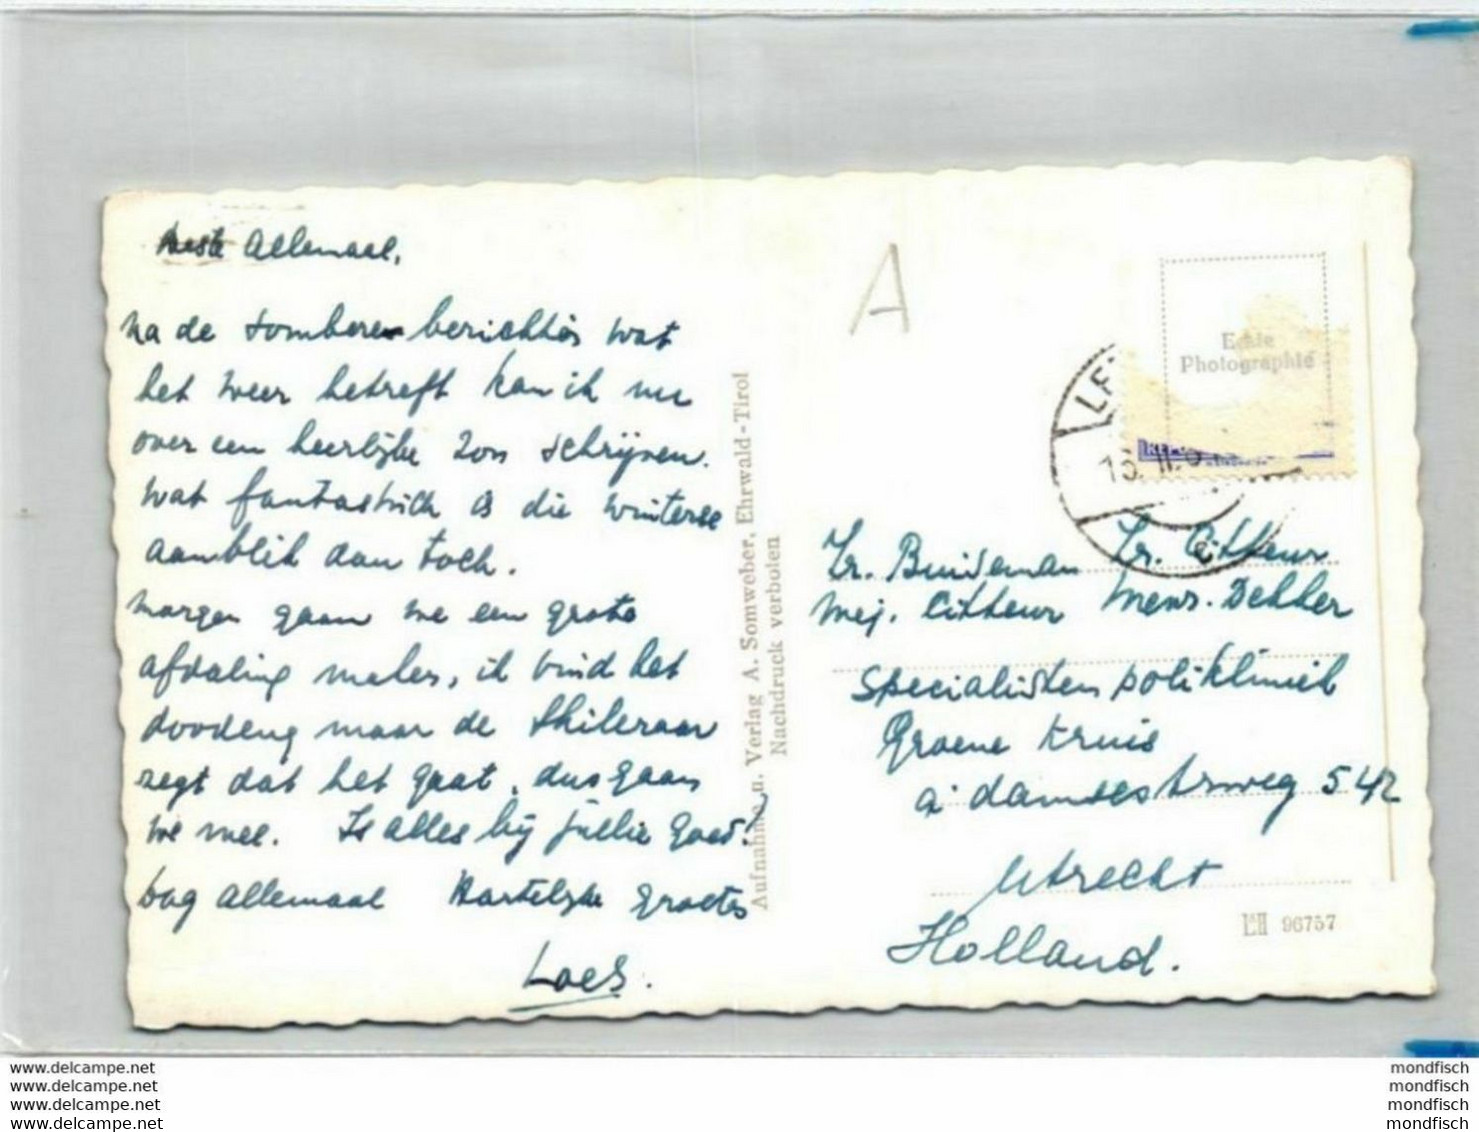 Beste Allemaal,
na de sombere berichten wat
het weer betreft kan ik nu
over een heerlijke zon schrijven.
wat fantastisch is die winterse
aanblik dan toch.
morgen gaan we een grote
afdaling maken, ik vind het
doodeng maar de skileraar
zegt dat het gaat, dus gaan
we mee. Is alles bij jullie goed?
Dag allemaal Hartelijke groetes
Loes.
Aufnahme u. Verlag A. Somweber, Ehrwald-Tirol
Nachdruck verboten
A
Echte
Photographie
Zr. Buideman Zr. Citteur
Mej. Citteur Mevr. Dekker
Specialisten polikliniek
Groene Kruis
a'damsestrweg 542
Utrecht
Holland.
96757
www.delcampe.net
www.delcampe.net
www.delcampe.net
www.delcampe.net
mondfisch
mondfisch
mondfisch
mondfisch